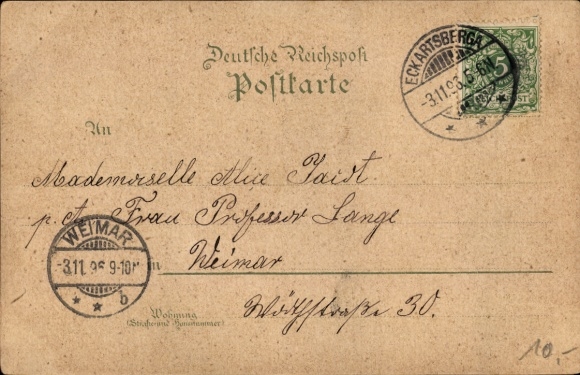 Deutsche Reichspost
Postkarte
ECKARTSBERGA
-3.11.96.5-6N
5
An
Mademoiselle Alice
p. A. Frau Professor Lange
WEIMAR
-3.11.96 9-10N
b
in Weimar
Wörthstraße 30.
Wohnung
(Straße und Hausnummer)
10,-